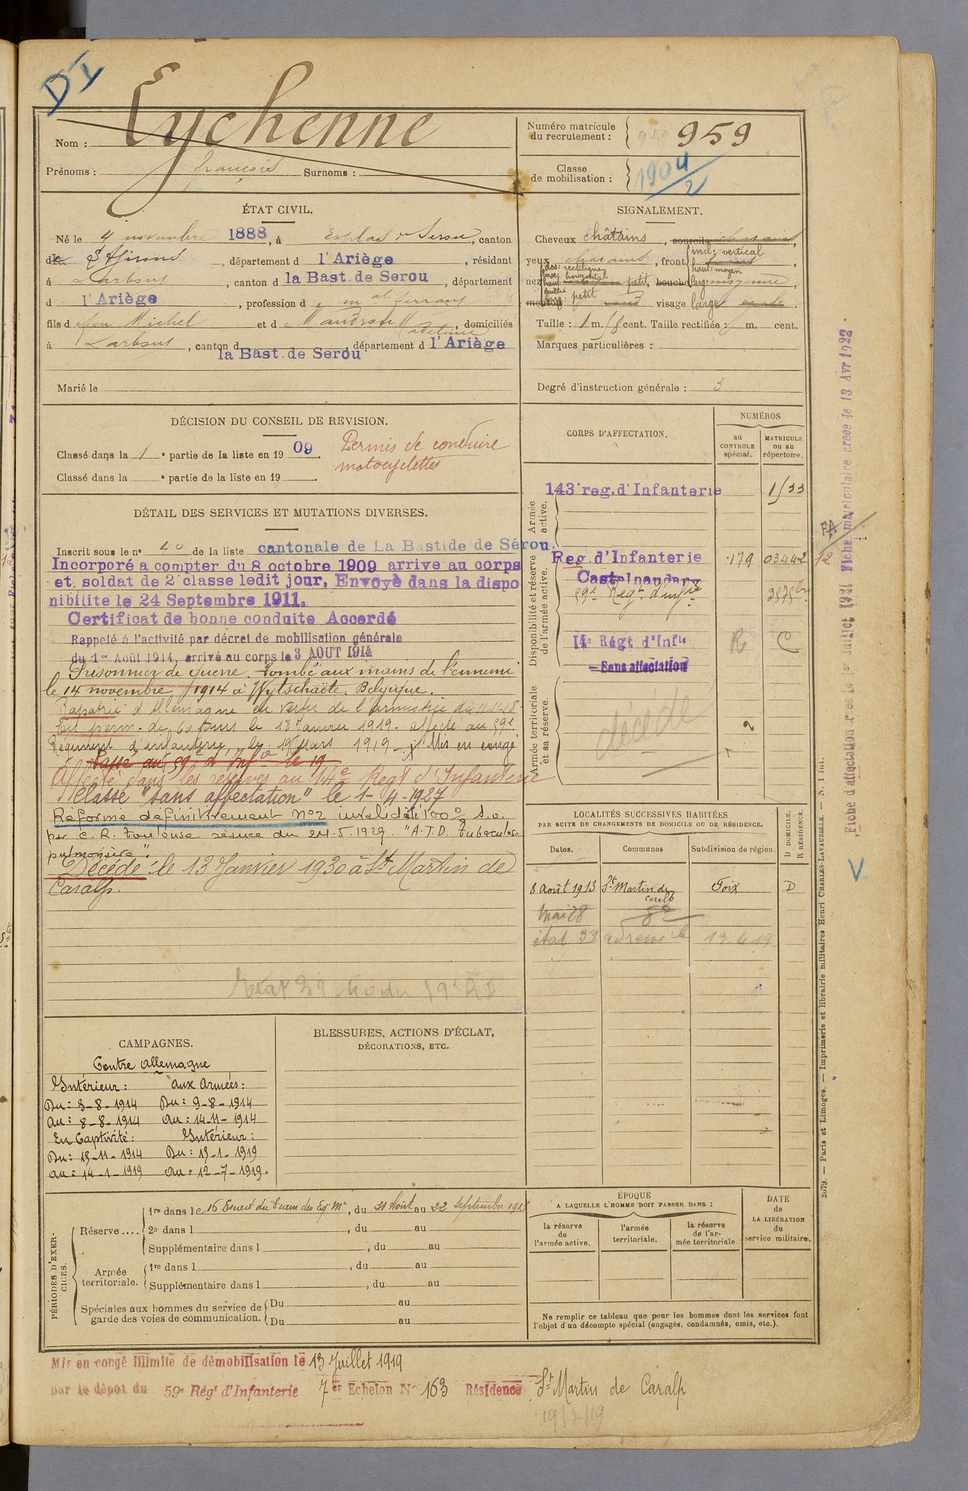 DI
Nom : Eychenne
Prénoms : françois Surnoms :
Numéro matricule du recrutement : 959
Classe de mobilisation : 1904/2
ÉTAT CIVIL.
Né le 4 novembre 1888, à Esplas de Serou, canton
d St Girons, département d l'Ariège, résidant
à Larbont, canton d la Bast. de Serou, département
d l'Ariège, profession d mal ferrant
fils d Jean Michel et d Maudrou Madeleine, domiciliés
à Larbont, canton d la Bast. de Serou, département d l'Ariège
Marié le
SIGNALEMENT.
Cheveux châtains, sourcils
yeux, front incl: vertical
haut: moyen
nez dos: rectiligne
base: horizontal
petit, bouche larg: moyenne
petit visage large
Taille : 1 m. cent. Taille rectifiée : m. cent.
Marques particulières :
Degré d'instruction générale : 3
DÉCISION DU CONSEIL DE REVISION.
Classé dans la 1e partie de la liste en 1909.
Classé dans la e partie de la liste en 19
Permis de conduire
motocyclettes
DÉTAIL DES SERVICES ET MUTATIONS DIVERSES.
Inscrit sous le no 40 de la liste cantonale de La Bastide de Sérou.
Incorporé à compter du 8 octobre 1909 arrivé au corps
et soldat de 2e classe ledit jour, Envoyé dans la dispo
nibilité le 24 Septembre 1911.
Certificat de bonne conduite Accordé
Rappelé à l'activité par décret de mobilisation générale
du 1er Août 1914, arrivé au corps le 3 AOUT 1914
Prisonnier de guerre. Tombé aux mains de l'ennemi
le 14 novembre 1914 à Wytschaëte, Belgique.
Rapatrié d'Allemagne en vertu de l'armistice du 11-11-18
perm. de 60 jours le 18 Janvier 1919. affecté au 59e
Régiment d'infanterie, le 19 Mars 1919 Mis en congé
Passé au 59e d'Infie le 19
Affecté dans les réserves au 14e Regt d'Infanterie
Classé "sans affectation" le 1-4-1927
Réformé définitivement No2 invalidité 100% S.O.
par C.R. Toulouse séance du 24.5.1929. "A.T.D. Tuberculose
pulmonaire".
Décédé le 13 Janvier 1930 à St Martin de
Caralp.
CORPS D'AFFECTATION.
NUMÉROS
AU CONTROLE spécial.
MATRICULE ou au répertoire.
Armée active.
143e reg. d'Infanterie
Disponibilité et réserve de l'armée active.
Reg. d'Infanterie 179 03442
Castelnaudary
59e Régt d'infie
14e Régt d'Infie R C
Sans affectation
Armée territoriale et sa réserve.
décédé
LOCALITÉS SUCCESSIVES HABITÉES
PAR SUITE DE CHANGEMENTS DE DOMICILE OU DE RÉSIDENCE.
Dates. Communes. Subdivision de région. D DOMICILE. R RÉSIDENCE.
8 Août 1913 St Martin de Caralp Foix D
CAMPAGNES.
Contre Allemagne
Intérieur : aux Armées :
Du : 3-8-1914 Du : 9-8-1914
au : 8-8-1914 au : 14-11-1914
En Captivité : Intérieur :
Du : 15-11-1914 Du : 15-1-1919
au : 14-1-1919 au : 12-7-1919.
BLESSURES, ACTIONS D'ÉCLAT,
DÉCORATIONS, ETC.
PÉRIODES D'EXERCICES.
Réserve....
1re dans le 16 Escad du train des Eq. Mres, du 31 Août au 22 septembre
2e dans l , du au
Supplémentaire dans l , du au
Armée territoriale.
1re dans l , du au
Supplémentaire dans l , du au
Spéciales aux hommes du service de garde des voies de communication.
Du au
Du au
ÉPOQUE
A LAQUELLE L'HOMME DOIT PASSER DANS :
la réserve de l'armée active.
l'armée territoriale.
la réserve de l'armée territoriale.
DATE DE LA LIBÉRATION du service militaire.
Ne remplir ce tableau que pour les hommes dont les services font
l'objet d'un décompte spécial (engagés, condamnés, omis, etc.).
Mis en congé illimité de démobilisation le 13 Juillet 1919
par le dépôt du 59e Rég' d'Infanterie 7er Echelon No 163 Résidence St Martin de Caralp
2079. — Paris et Limoges. — Imprimerie et librairie militaires Henri CHARLES-LAVAUZELLE.